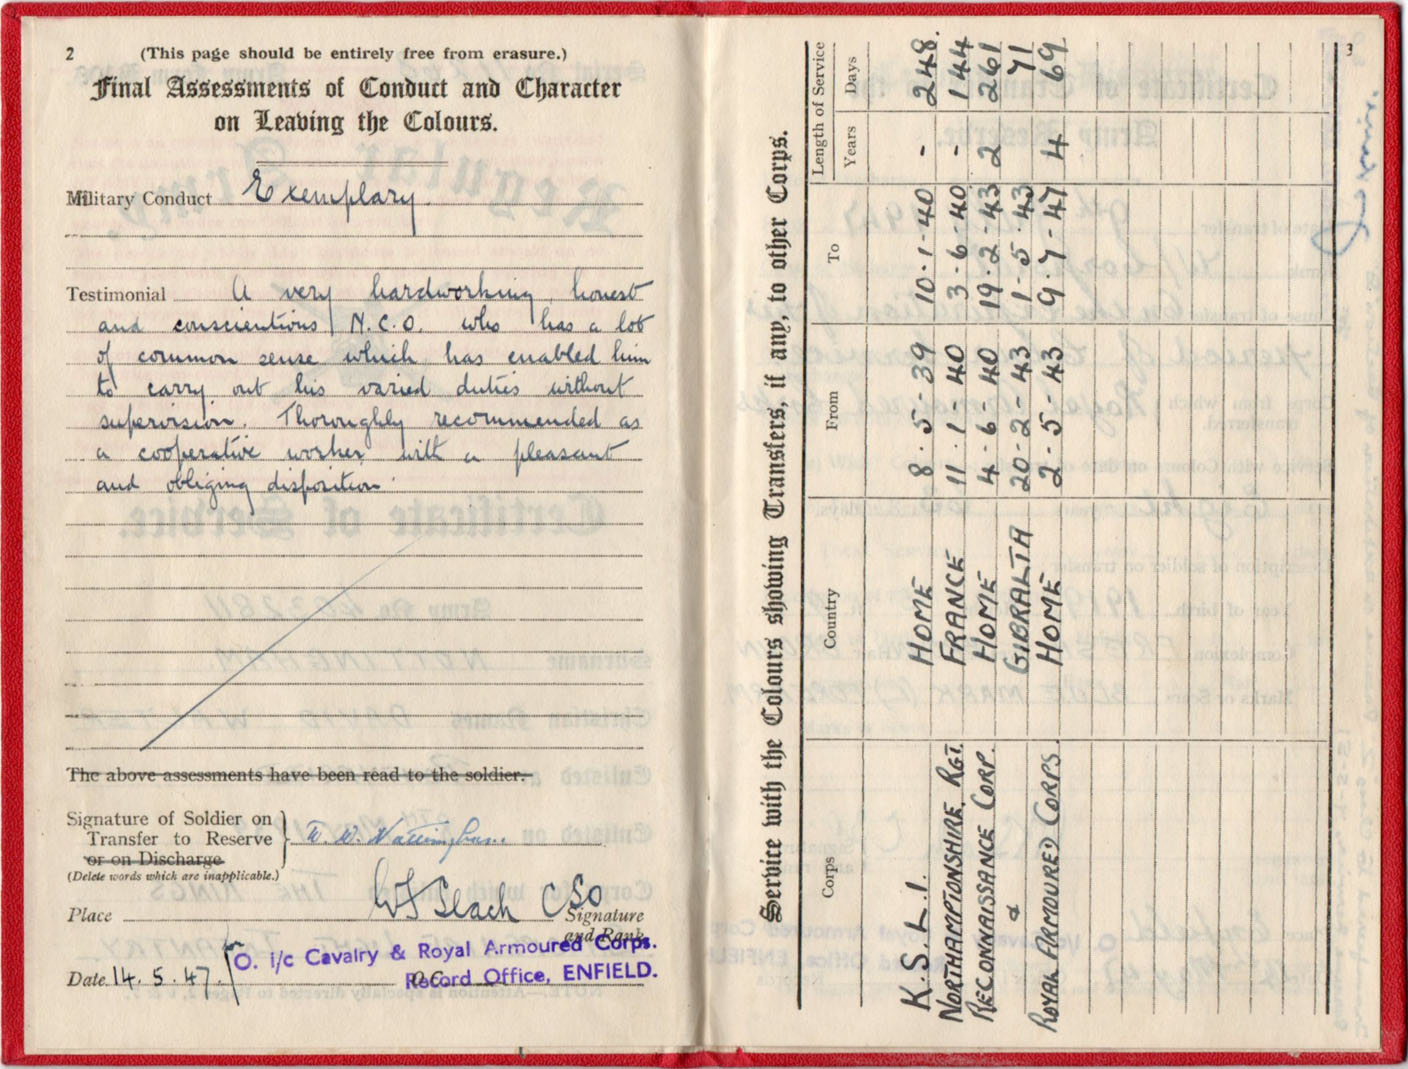 2 (This page should be entirely free from erasure.)
Final Assessments of Conduct and Character
on Leaving the Colours.
Military Conduct Exemplary.
Testimonial A very hardworking, honest
and conscientious N.C.O. who has a lot
of common sense which has enabled him
to carry out his varied duties without
supervision. Thoroughly recommended as
a cooperative worker with a pleasant
and obliging disposition.
The above assessments have been read to the soldier.
Signature of Soldier on
Transfer to Reserve
or on Discharge
(Delete words which are inapplicable.)
D. W. Nottingham
Place
W F Leach CSO
Signature
and Rank
Date 14.5.47.
for O. i/c Cavalry & Royal Armoured Corps.
Record Office, ENFIELD.
3
Service with the Colours showing Transfers, if any, to other Corps.
Corps Country From To Length of Service
Years Days
K.S.L.I. HOME 8-5-39 10-1-40 - 248.
NORTHAMPTONSHIRE RGT. FRANCE 11-1-40 3-6-40 - 144
RECONNAISSANCE CORP. HOME 4-6-40 19-2-43 2 261
& GIBRALTA 20-2-43 1-5-43 71
ROYAL ARMOURED CORPS. HOME 2-5-43 9-7-47 4 69